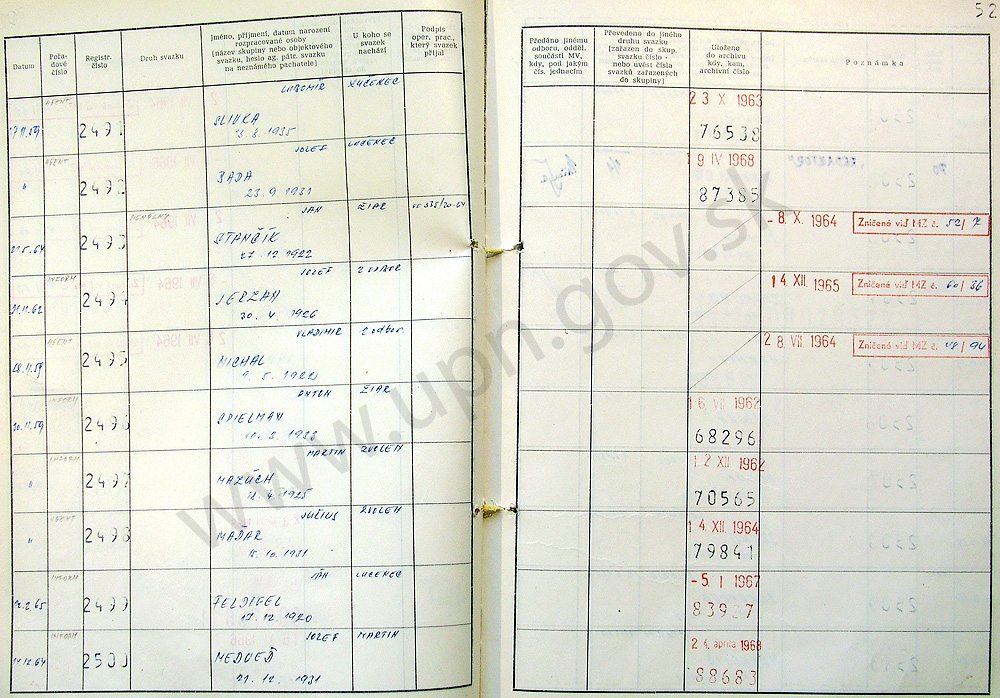 52
Datum
Pořa-
dové
číslo
Registr.
číslo
Druh svazku
Jméno, příjmení, datum narození
rozpracované osoby
(název skupiny nebo objektového
svazku, heslo ag. pátr. svazku
na neznámého pachatele)
U koho se
svazek
nachází
Podpis
oper. prac.,
který svazek
přijal
Předáno jinému
odboru, odděl.
součásti MV,
kdy, pod jakým
čís. jednacím
Převedeno do jiného
druhu svazku
(zařazen do skup.
svazku číslo -
nebo uvést čísla
svazků zařazených
do skupiny)
Uloženo
do archivu
kdy, kam,
archivní číslo
Poznámka
AGENT
2491
LUBOMÍR
SLIVKA
13.8.1935
LUČENEC
23 X 1963
76538
AGENT
"
2492
JOZEF
BADA
23.9.1931
LUČENEC
19 IV 1968
87385
2493
JÁN
STANČÍK
27.12.1922
ŽIAR
-8. X. 1964
Zničené viď MZ č. 52/7
INFORM
2494
JOZEF
30.4.1926
14. XII. 1965
Zničené viď MZ č. 60/36
AGENT
28.11.59
2495
VLADIMÍR
MICHAL
9.5.1922
2 odbor
28 VII 1964
Zničené viď MZ č. 48/94
INFORM
2496
ANTON
SPIELMAN
ŽIAR
16. VII. 1962
68296
INFORM
"
2497
MARTIN
MAZÚCH
ZVOLEN
12 XII 1962
70565
AGENT
"
2498
JÚLIUS
MAĎAR
15.10.1931
ZVOLEN
14. XII. 1964
79841
INFORM
2499
JÁN
FELDIGEL
17.12.1920
LUČENEC
-5. I 1967
83927
INFORM
14.12.64
2500
JOZEF
MEDVEĎ
21.12.1931
MARTIN
24. apríla 1968
88683
www.upn.gov.sk